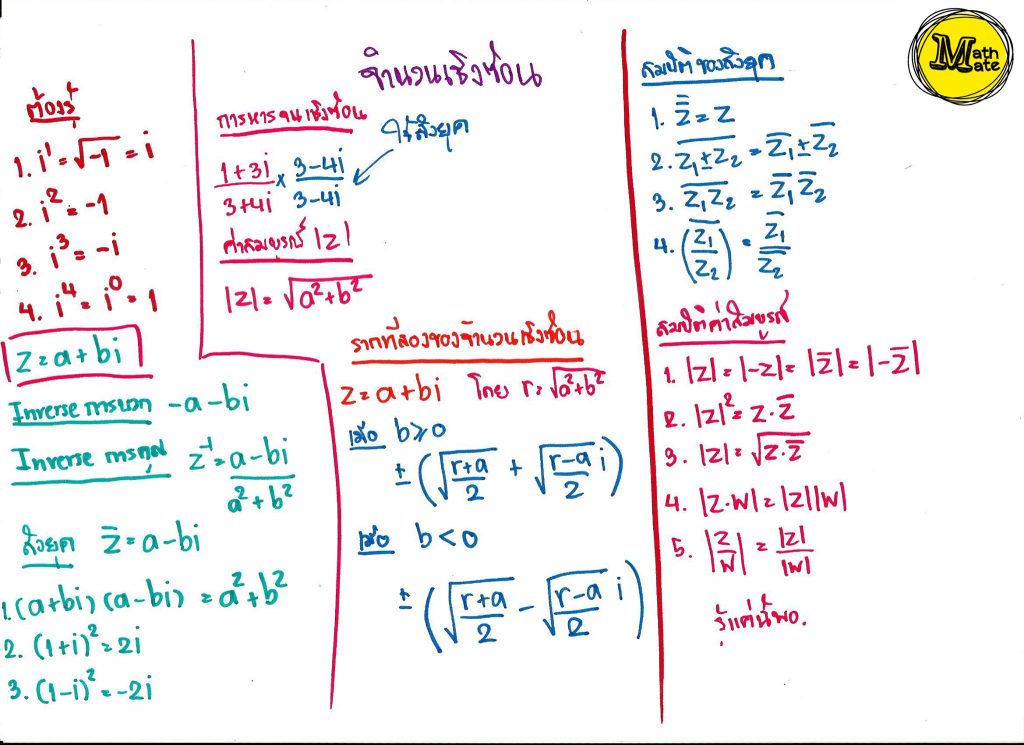 จำนวนเชิงซ้อน
Math
Mate
ต้องรู้
1. i¹ = √-1 = i
2. i² = -1
3. i³ = -i
4. i⁴ = i⁰ = 1
z = a + bi
Inverse การบวก -a-bi
Inverse การคูณ z⁻¹ = (a-bi)/(a²+b²)
สังยุค z̄ = a-bi
1. (a+bi)(a-bi) = a²+b²
2. (1+i)² = 2i
3. (1-i)² = -2i
การหารจนเชิงซ้อน
ใช้สังยุค
(1+3i)/(3+4i) × (3-4i)/(3-4i)
ค่าสมบูรณ์ |z|
|z| = √(a²+b²)
รากที่สองของจำนวนเชิงซ้อน
z = a+bi โดย r = √(a²+b²)
เมื่อ b ≥ 0
± (√((r+a)/2) + √((r-a)/2) i)
เมื่อ b < 0
± (√((r+a)/2) - √((r-a)/2) i)
สมบัติของสังยุค
1. z̿ = z
2. \overline{z₁±z₂} = z̄₁ ± z̄₂
3. \overline{z₁z₂} = z̄₁ z̄₂
4. \overline{(z₁/z₂)} = z̄₁/z̄₂
สมบัติค่าสัมบูรณ์
1. |z| = |-z| = |z̄| = |-z̄|
2. |z|² = z·z̄
3. |z| = √(z·z̄)
4. |z·w| = |z||w|
5. |z/w| = |z|/|w|
รู้แค่นี้พอ.